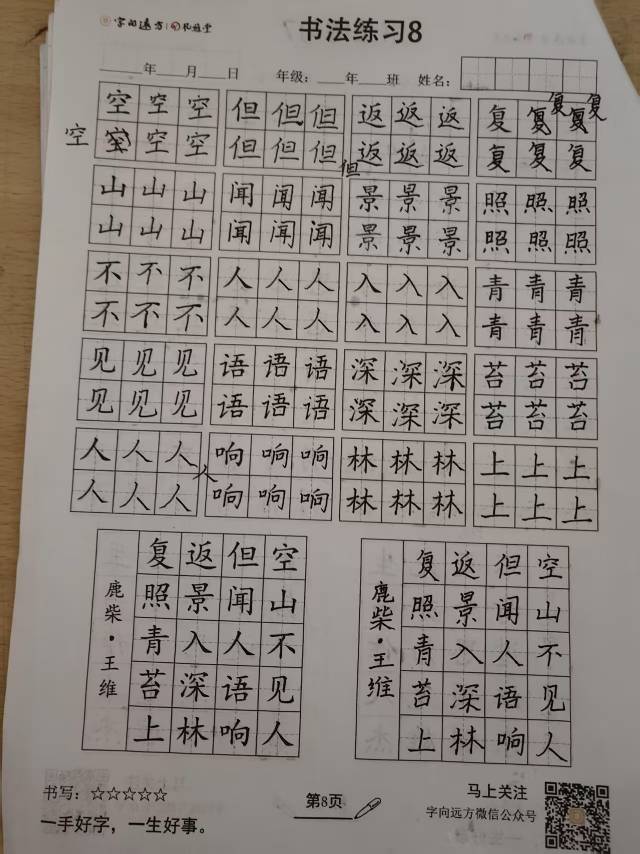 字向远方
书法练习8
年 月 日 年级: 年 班 姓名:
空 空 空 但 但 但 返 返 返 复 复 复 复 复
空 空 空 空 但 但 但 但 返 返 返 复 复 复
山 山 山 闻 闻 闻 景 景 景 照 照 照
山 山 山 闻 闻 闻 景 景 景 照 照 照
不 不 不 人 人 人 入 入 入 青 青 青
不 不 不 人 人 人 入 入 入 青 青 青
见 见 见 语 语 语 深 深 深 苔 苔 苔
见 见 见 语 语 语 深 深 深 苔 苔 苔
人 人 人 响 响 响 林 林 林 上 上 上
人 人 人 人 响 响 响 林 林 林 上 上 上
空山不见人
但闻人语响
返景入深林
复照青苔上
鹿柴·王维
空山不见人
但闻人语响
返景入深林
复照青苔上
鹿柴·王维
书写:☆☆☆☆☆
一手好字,一生好事。
第8页
马上关注
字向远方微信公众号